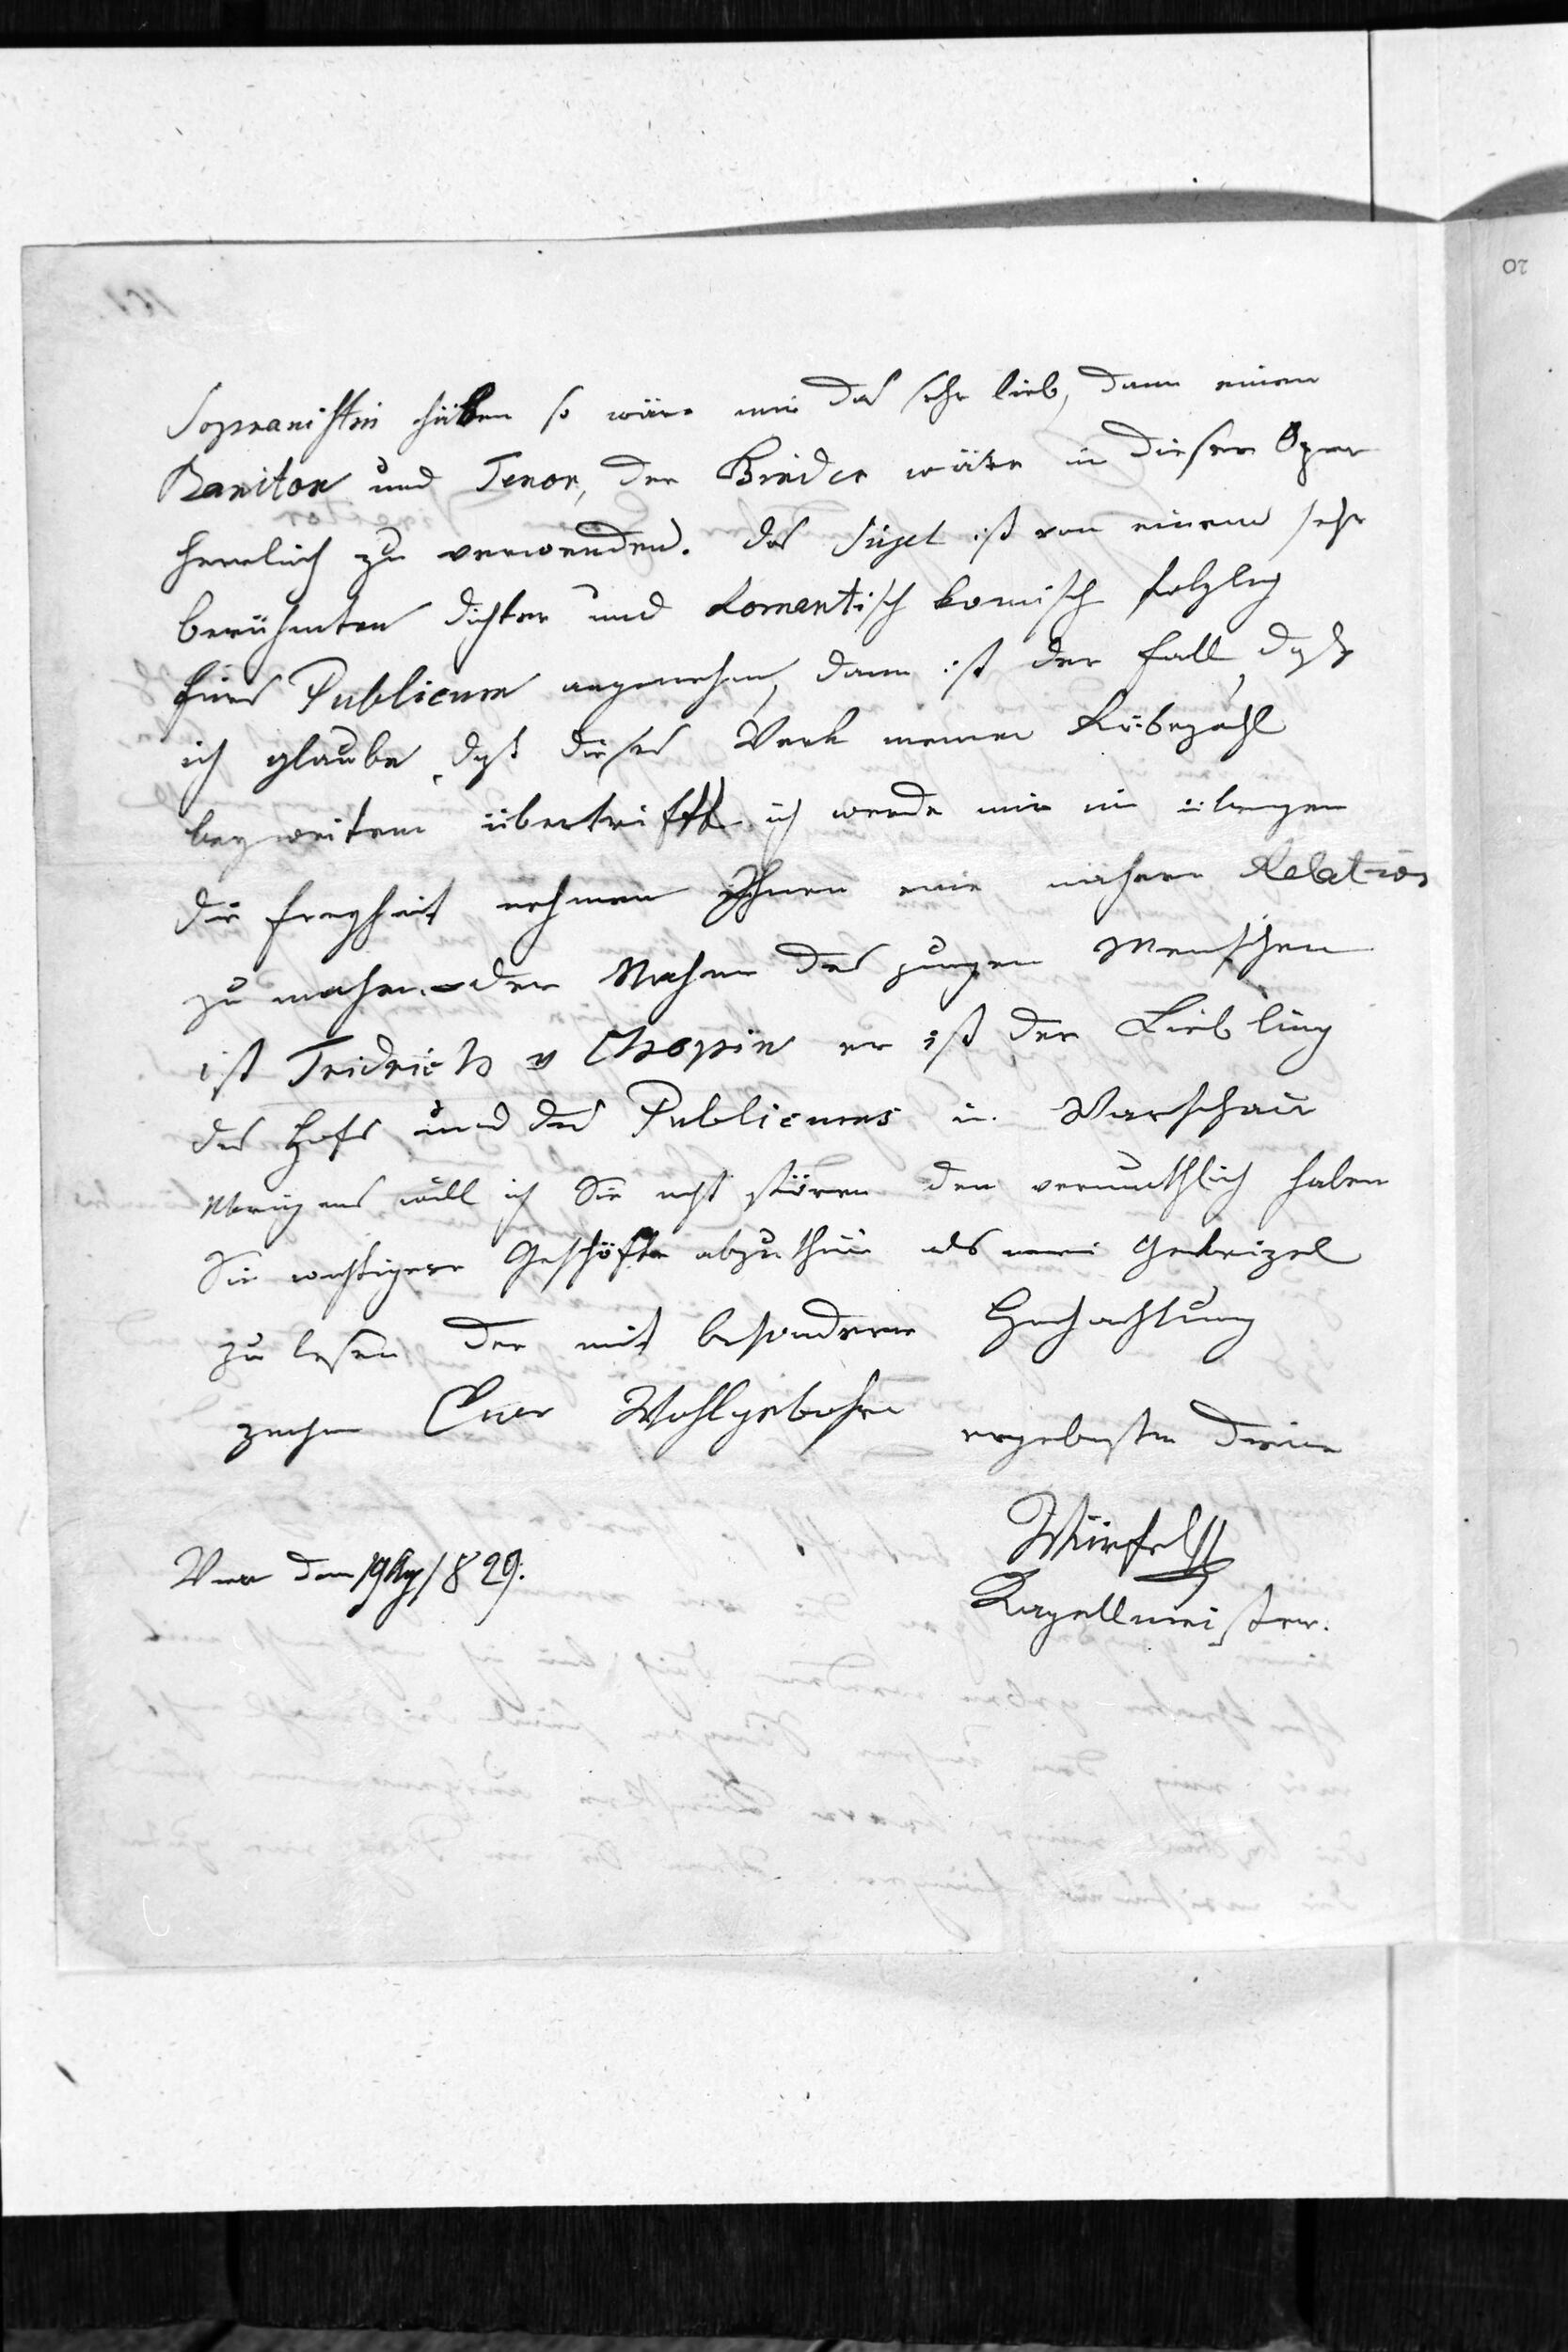 Sopranistin hätten so wäre mir das sehr lieb, dann einen
Bariton und Tenor, der Binder wäre in dieser Oper
herrlich zu verwenden. das Süjet ist von einem sehr
berühmten dichter und Romantisch komisch folglig
fürs Publicum angenehm, dann ist der fall, daß
ich glaube, daß dieses Werk meinen Rübezahl
bey weitem übertrifft ich werde mir im übrigen
die freyheit nehmen Ihnen eine nähere Relation
zu machen der Nahme des jungen Menschen
ist Fridrich v Chopin er ist der Liebling
des Hofs und des Publicums in Warschau
übrigens will ich Sie nicht stören den vermuthlich haben
Sie wichtigere Geschäfte abzuthun als mein Gekrizel
zu lesen der mit besonderer Hochachtung
Euer Wohlgebohrn
ergebenster Diener
Würfel
Wien den 19 Aug 1829.
Kapellmeister.
20